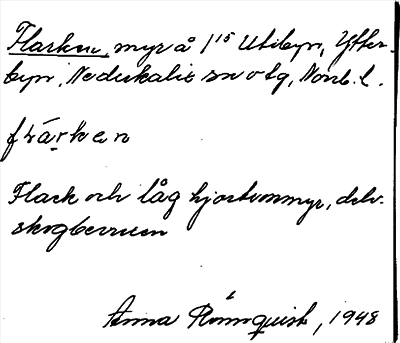 Flarken, myr å 1¹⁵ Utibyn, Ytter-
byn, Nederkalix sn o tg, Norrb. l.
flárkẹn
Flack och låg hjortronmyr, delv.
skogbevuxen
Anna Rönnquist, 1948